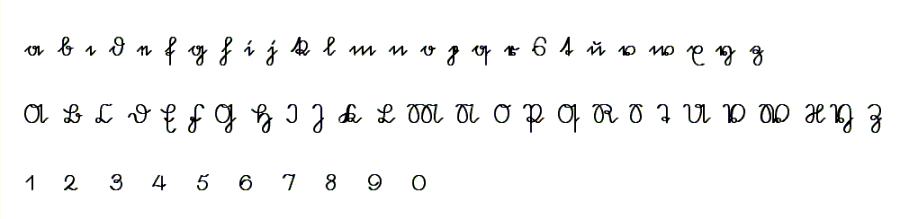 a b c d e f g h i j k l m n o p q r s t u v w x y z
A B C D E F G H I J K L M N O P Q R S T U V W X Y Z
1 2 3 4 5 6 7 8 9 0